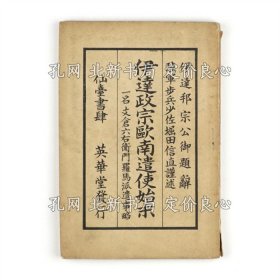 伊達邦宗公御題辭
陸軍步兵少佐堀田信直謹述
伊達政宗歐南遣使始末
一名支倉六右衛門羅馬派遣事略
仙臺書肆 英華堂發行
孔网 北新书店
孔网 北新书店
孔网 北新书店